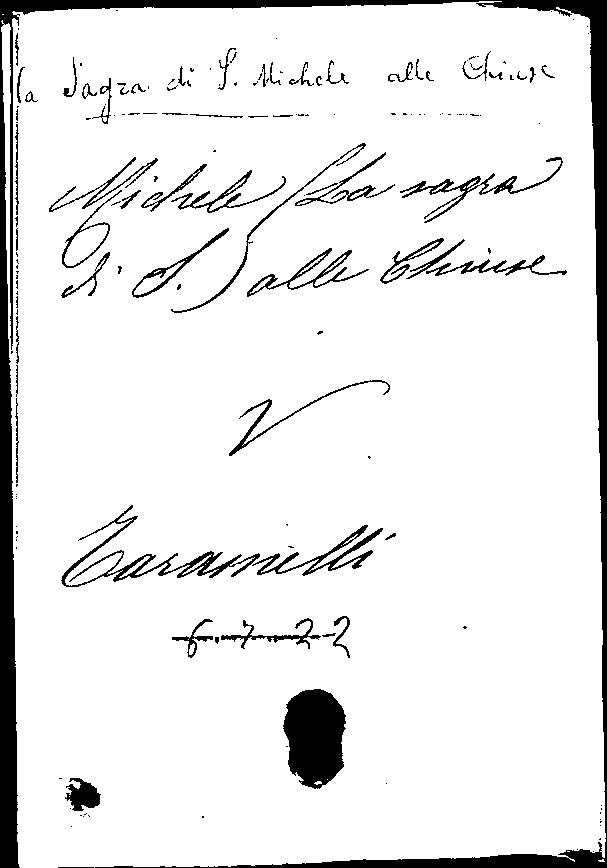 la Sagra di S. Michele alle Chiuse
Michele (La sagra
di S.) alle Chiuse
V
Taramelli
6.7.22